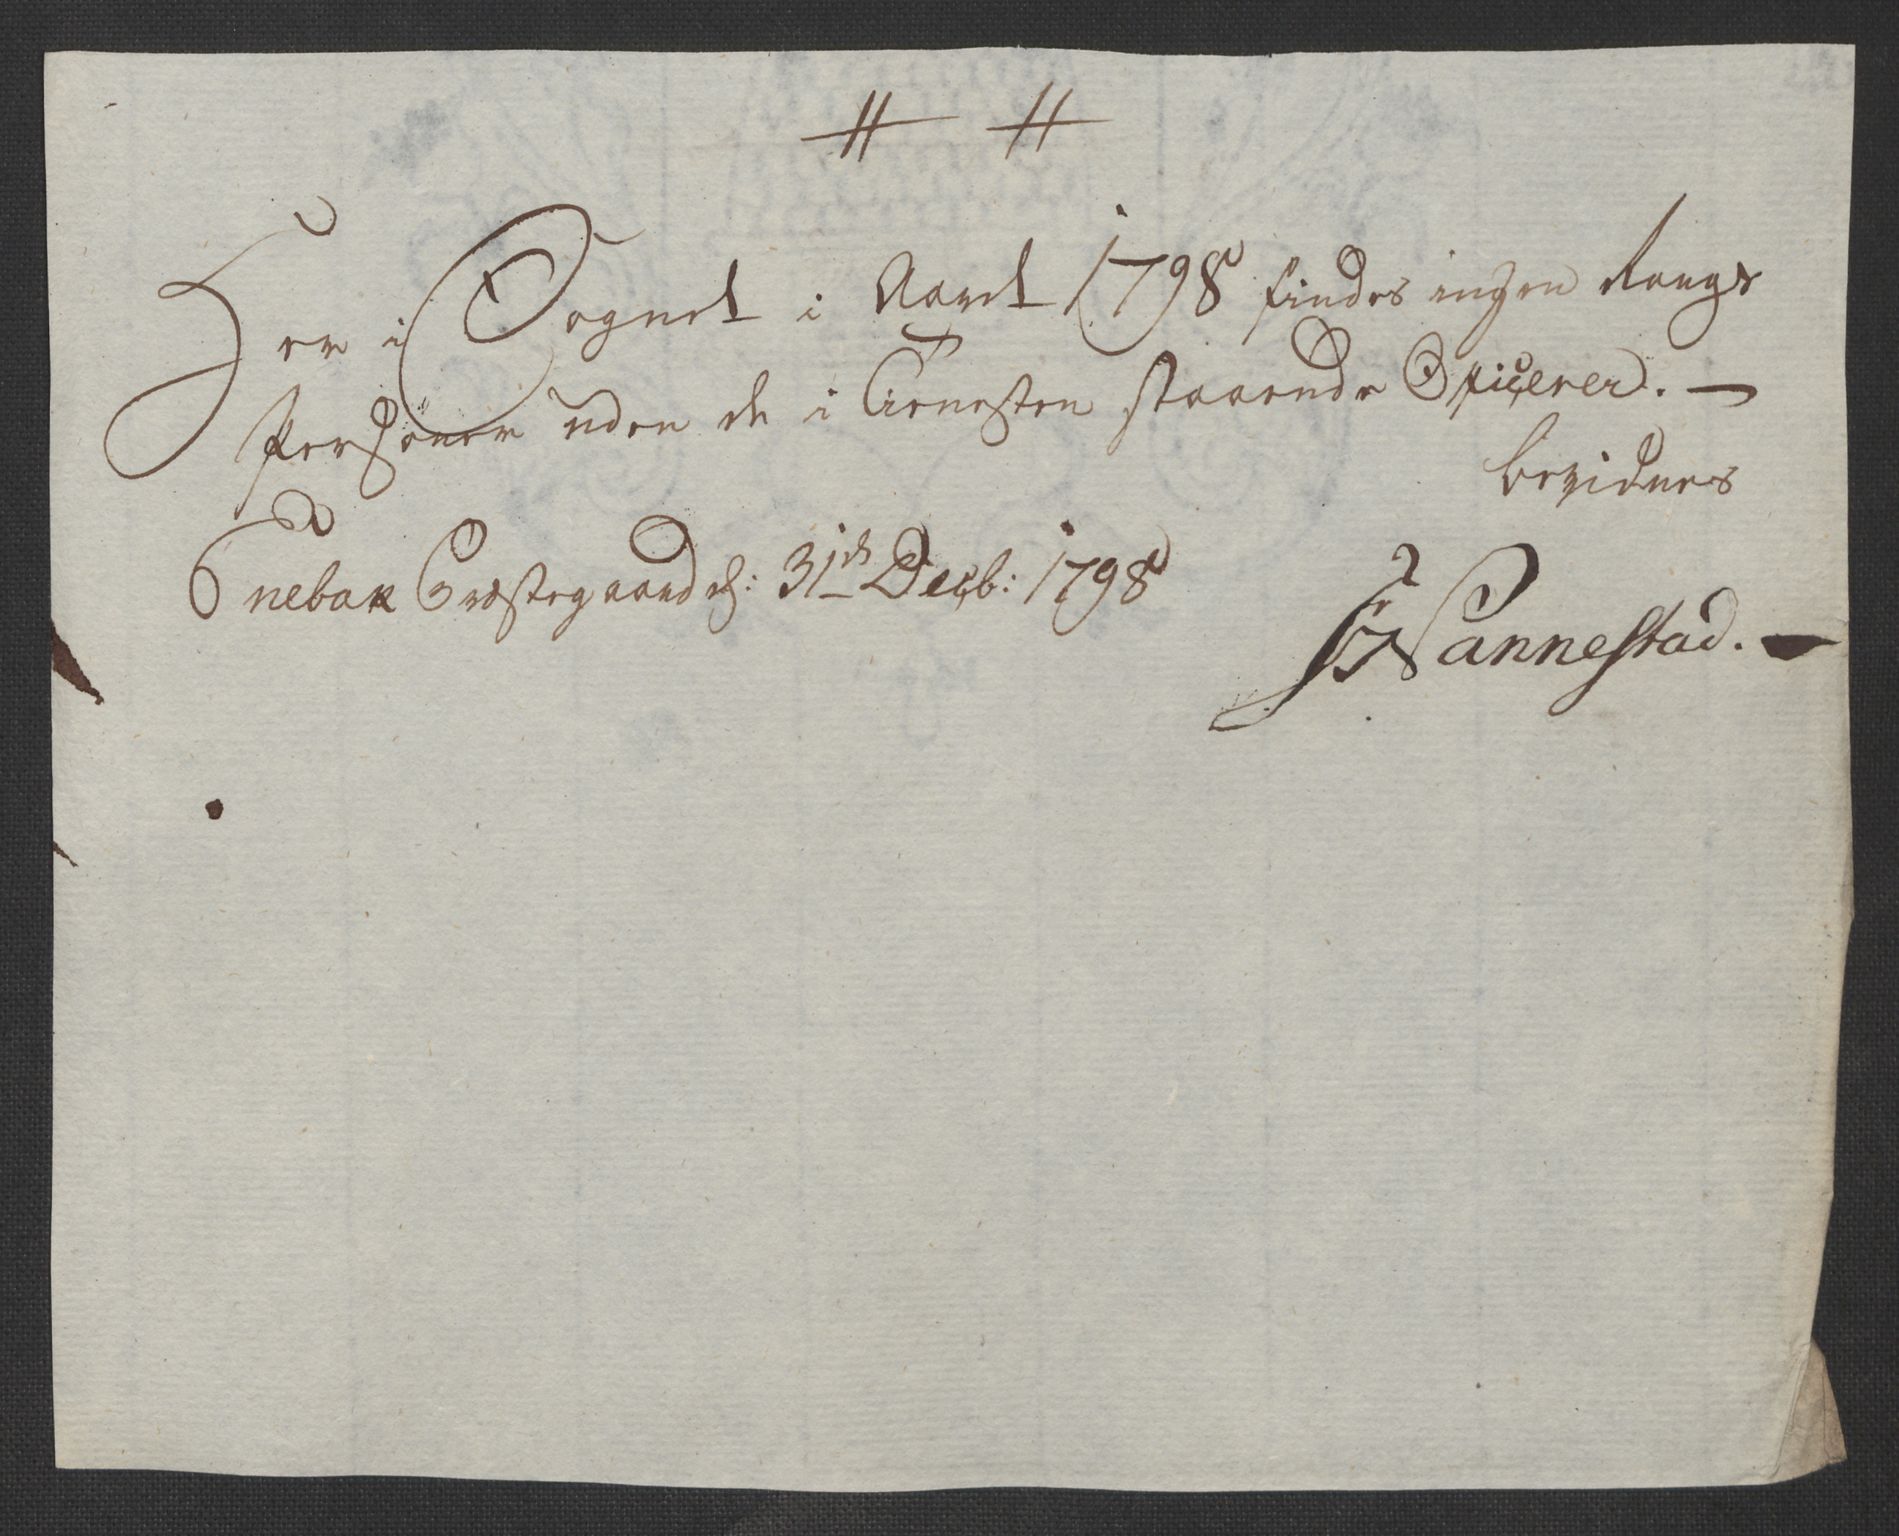 Her i Sognet i Aaret 1798 findes ingen Rangs
Personer uden de i Tienesten staaende Officerer. —
bevidnes
Enebak Præstegaard d: 31te Decb: 1798
Wannestad.